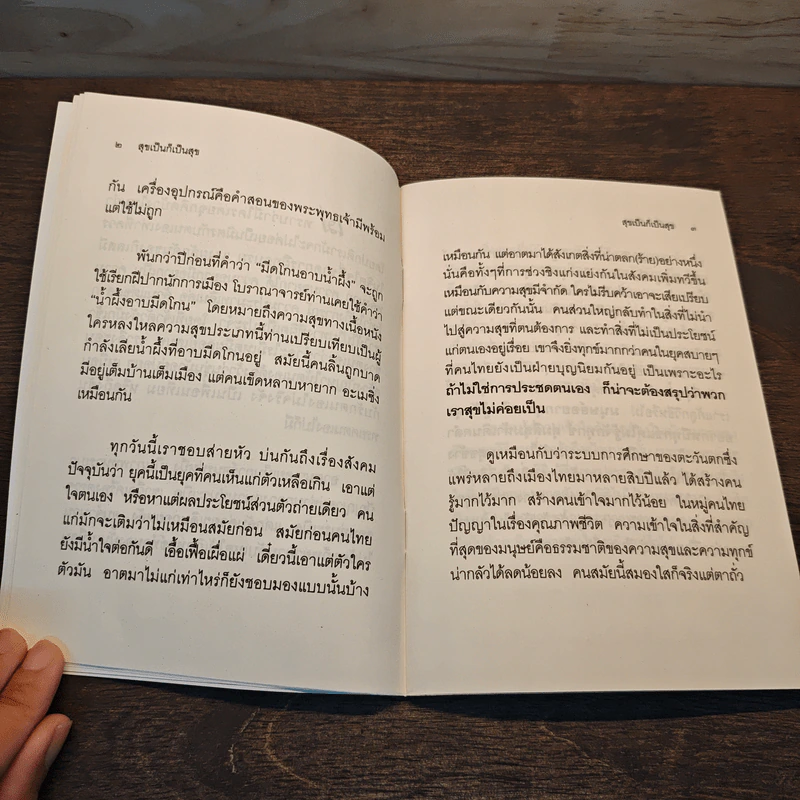 ๒ สุขเป็นก็เป็นสุข
กัน เครื่องอุปกรณ์คือคำสอนของพระพุทธเจ้ามีพร้อม
แต่ใช้ไม่ถูก
พันกว่าปีก่อนที่คำว่า “มีดโกนอาบน้ำผึ้ง” จะถูก
ใช้เรียกฝีปากนักการเมือง โบราณาจารย์ท่านเคยใช้คำว่า
“น้ำผึ้งอาบมีดโกน” โดยหมายถึงความสุขทางเนื้อหนัง
ใครหลงใหลความสุขประเภทนี้ท่านเปรียบเทียบเป็นผู้
กำลังเลียน้ำผึ้งที่อาบมีดโกนอยู่ สมัยนี้คนลิ้นถูกบาด
มีอยู่เต็มบ้านเต็มเมือง แต่คนเข็ดหลาบหายาก อะเมซิ่ง
เหมือนกัน
ทุกวันนี้เราชอบส่ายหัว บ่นกันถึงเรื่องสังคม
ปัจจุบันว่า ยุคนี้เป็นยุคที่คนเห็นแก่ตัวเหลือเกิน เอาแต่
ใจตนเอง หรือหาแต่ผลประโยชน์ส่วนตัวถ่ายเดียว คน
แก่มักจะเติมว่าไม่เหมือนสมัยก่อน สมัยก่อนคนไทย
ยังมีน้ำใจต่อกันดี เอื้อเฟื้อเผื่อแผ่ เดี๋ยวนี้เอาแต่ตัวใคร
ตัวมัน อาตมาไม่แก่เท่าไหร่ก็ยังชอบมองแบบนั้นบ้าง
สุขเป็นก็เป็นสุข ๓
เหมือนกัน แต่อาตมาได้สังเกตสิ่งที่น่าตลก(ร้าย)อย่างหนึ่ง
นั่นคือทั้งๆที่การช่วงชิงแก่งแย่งกันในสังคมเพิ่มทวีขึ้น
เหมือนกับความสุขมีจำกัด ใครไม่รีบคว้าเอาจะเสียเปรียบ
แต่ขณะเดียวกันนั้น คนส่วนใหญ่กลับทำในสิ่งที่ไม่นำ
ไปสู่ความสุขที่ตนต้องการ และทำสิ่งที่ไม่เป็นประโยชน์
แก่ตนเองอยู่เรื่อย เขาจึงยิ่งทุกข์มากกว่าคนในยุคสบายๆ
ที่คนไทยยังเป็นฝ่ายบุญนิยมกันอยู่ เป็นเพราะอะไร
ถ้าไม่ใช่การประชดตนเอง ก็น่าจะต้องสรุปว่าพวก
เราสุขไม่ค่อยเป็น
ดูเหมือนกับว่าระบบการศึกษาของตะวันตกซึ่ง
แพร่หลายถึงเมืองไทยมาหลายสิบปีแล้ว ได้สร้างคน
รู้มากไว้มาก สร้างคนเข้าใจมากไว้น้อย ในหมู่คนไทย
ปัญญาในเรื่องคุณภาพชีวิต ความเข้าใจในสิ่งที่สำคัญ
ที่สุดของมนุษย์คือธรรมชาติของความสุขและความทุกข์
น่ากลัวได้ลดน้อยลง คนสมัยนี้สมองใสก็จริงแต่ตาถั่ว